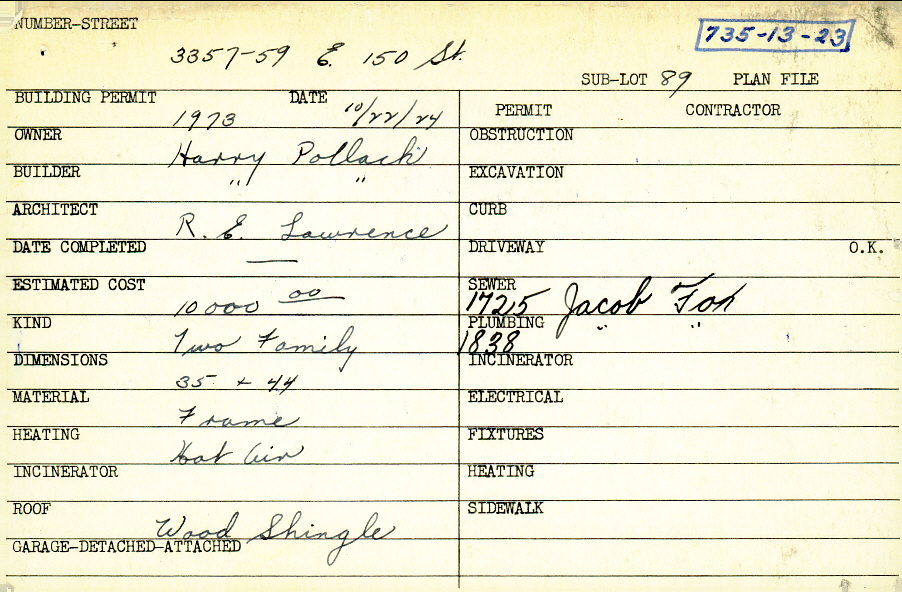 NUMBER-STREET
3357-59 E. 150 St.
735-13-23
SUB-LOT 89 PLAN FILE
BUILDING PERMIT 1973 DATE 10/22/24
OWNER Harry Pollack
BUILDER " "
ARCHITECT R. E. Lawrence
DATE COMPLETED —
ESTIMATED COST 10000 00
KIND Two Family
DIMENSIONS 35 + 44
MATERIAL Frame
HEATING Hot Air
INCINERATOR
ROOF Wood Shingle
GARAGE-DETACHED-ATTACHED
PERMIT CONTRACTOR
OBSTRUCTION
EXCAVATION
CURB
DRIVEWAY O.K.
SEWER 1725 Jacob Fox
PLUMBING 1838 " "
INCINERATOR
ELECTRICAL
FIXTURES
HEATING
SIDEWALK